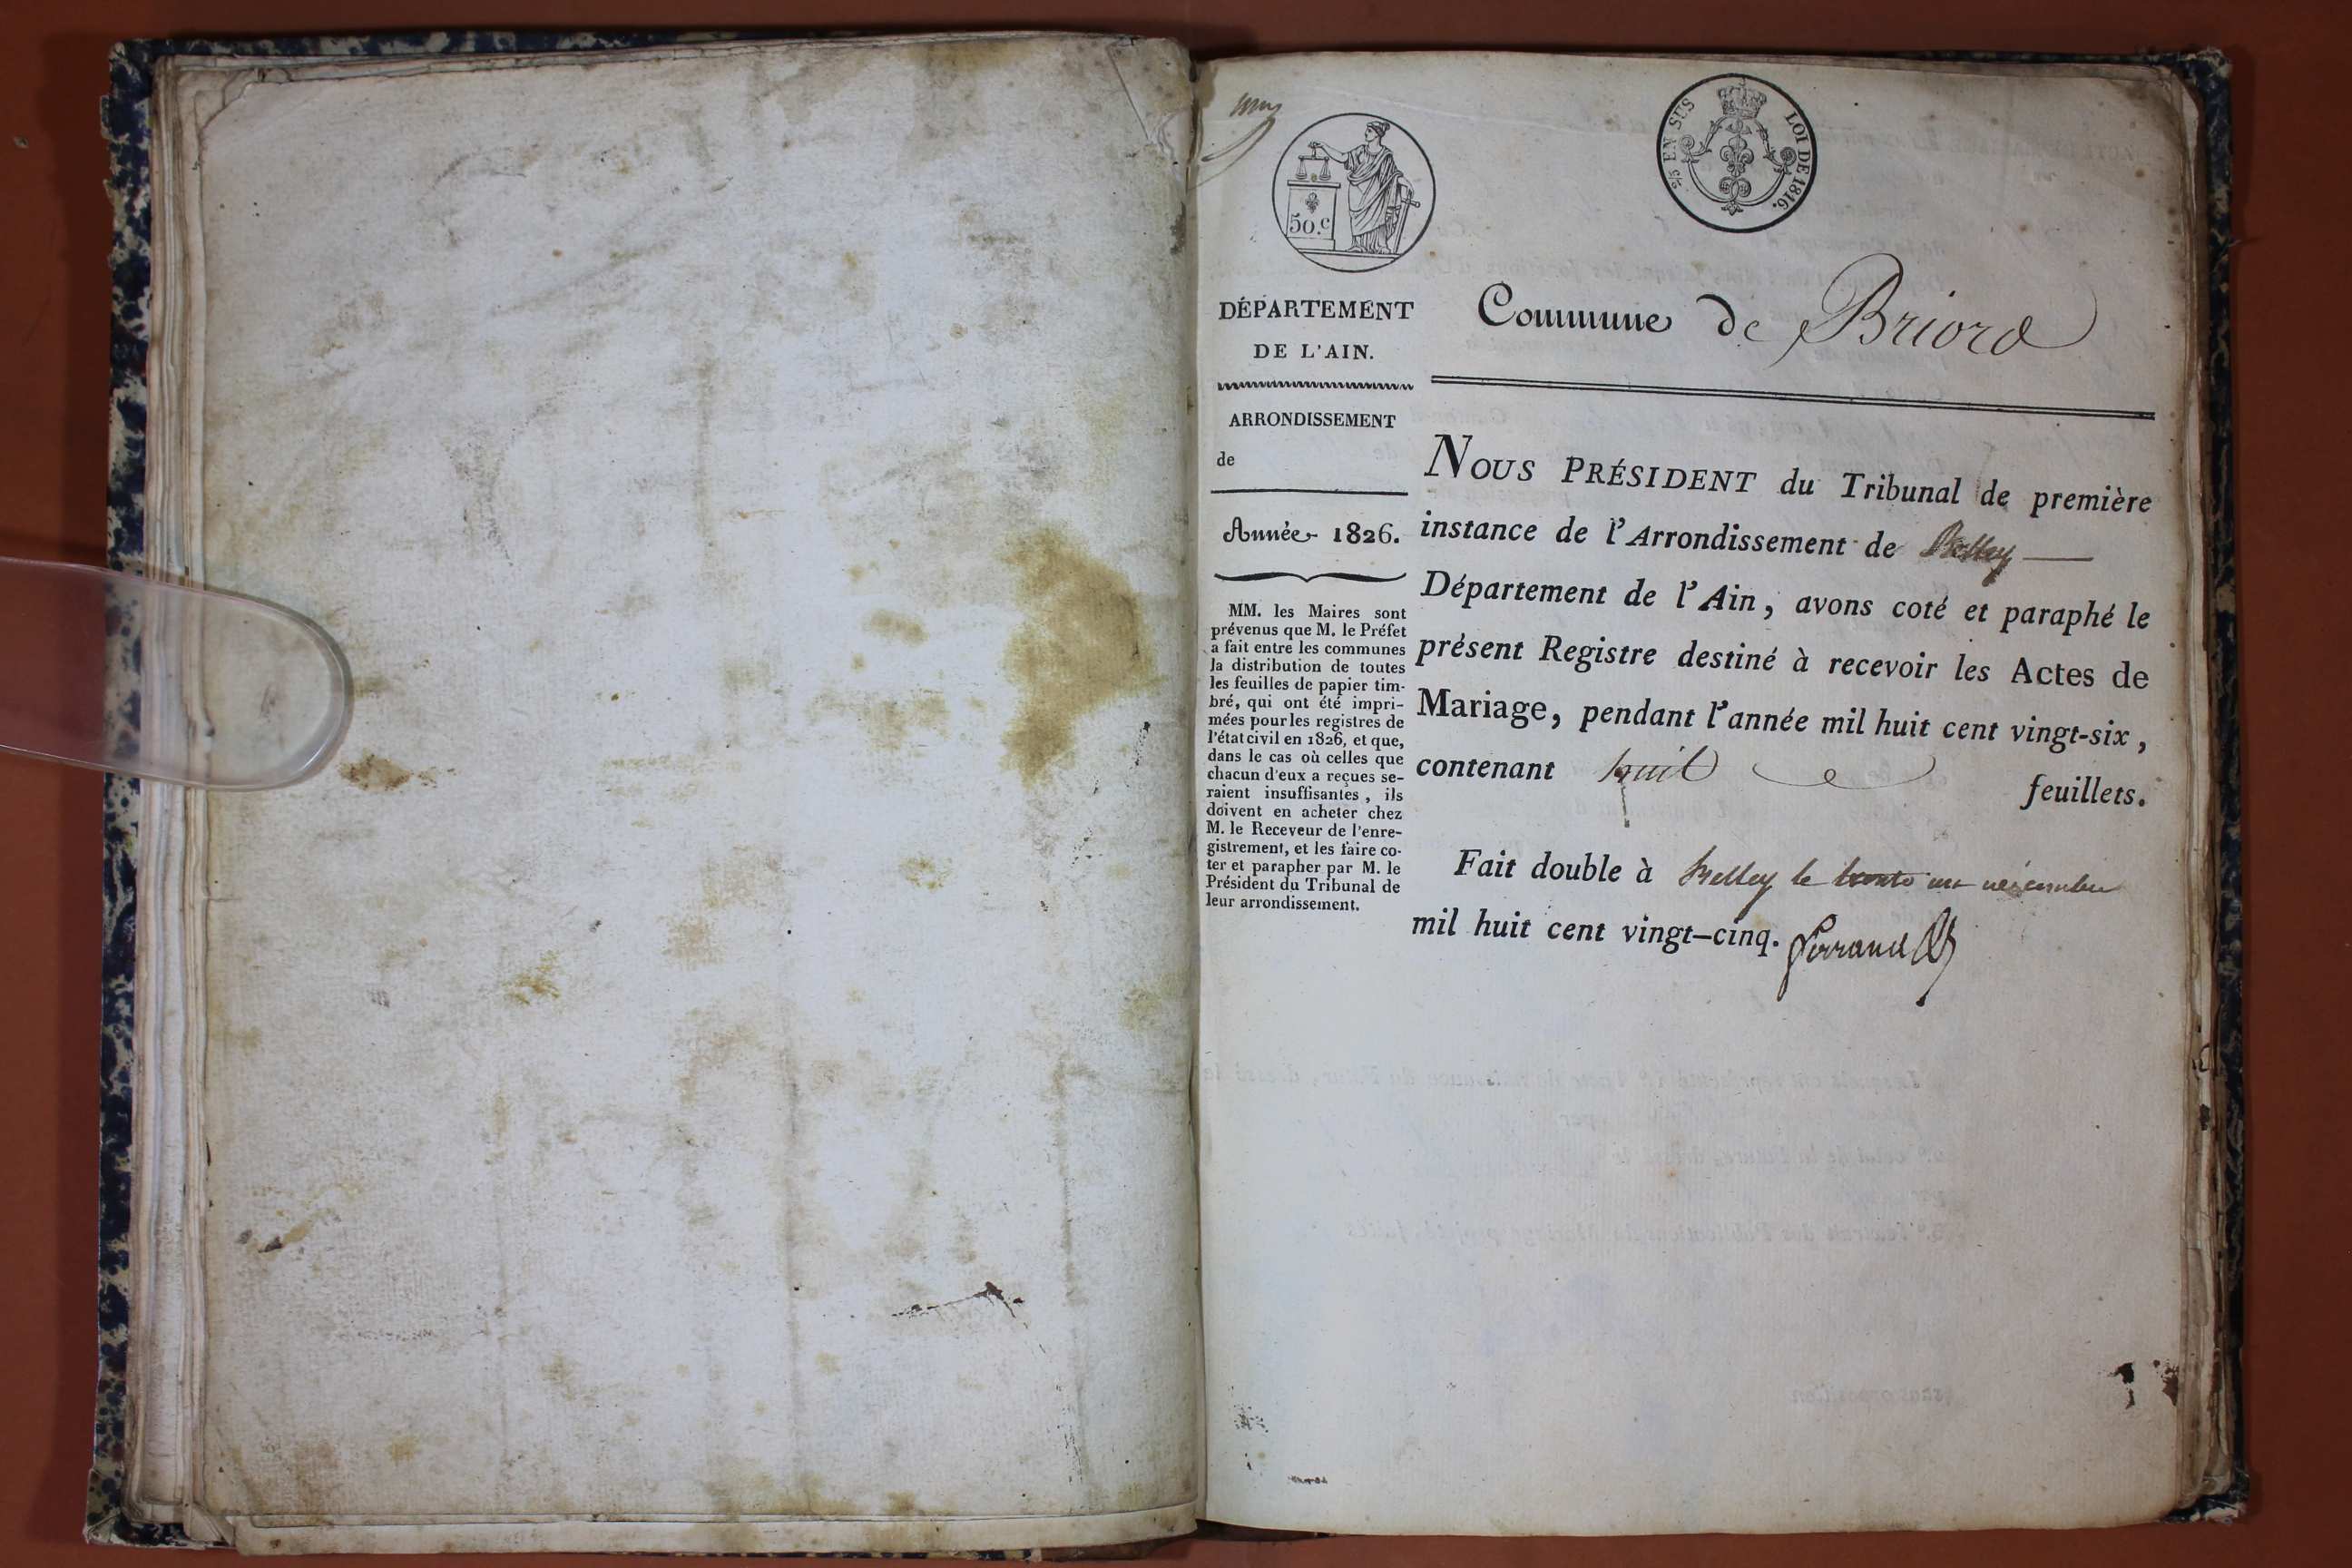 50.c
2/5 EN SUS
LOI DE 1816.
DÉPARTEMENT
DE L'AIN.
Commune de Briord
ARRONDISSEMENT
de
Année 1826.
MM. les Maires sont
prévenus que M. le Préfet
a fait entre les communes
la distribution de toutes
les feuilles de papier tim-
bré, qui ont été impri-
mées pour les registres de
l'état civil en 1826, et que,
dans le cas où celles que
chacun d'eux a reçues se-
raient insuffisantes, ils
doivent en acheter chez
M. le Receveur de l'enre-
gistrement, et les faire co-
ter et parapher par M. le
Président du Tribunal de
leur arrondissement.
NOUS PRÉSIDENT du Tribunal de première
instance de l'Arrondissement de Belley
Département de l'Ain, avons coté et paraphé le
présent Registre destiné à recevoir les Actes de
Mariage, pendant l'année mil huit cent vingt-six,
contenant huit feuillets.
Fait double à Belley le trente un décembre
mil huit cent vingt-cinq.